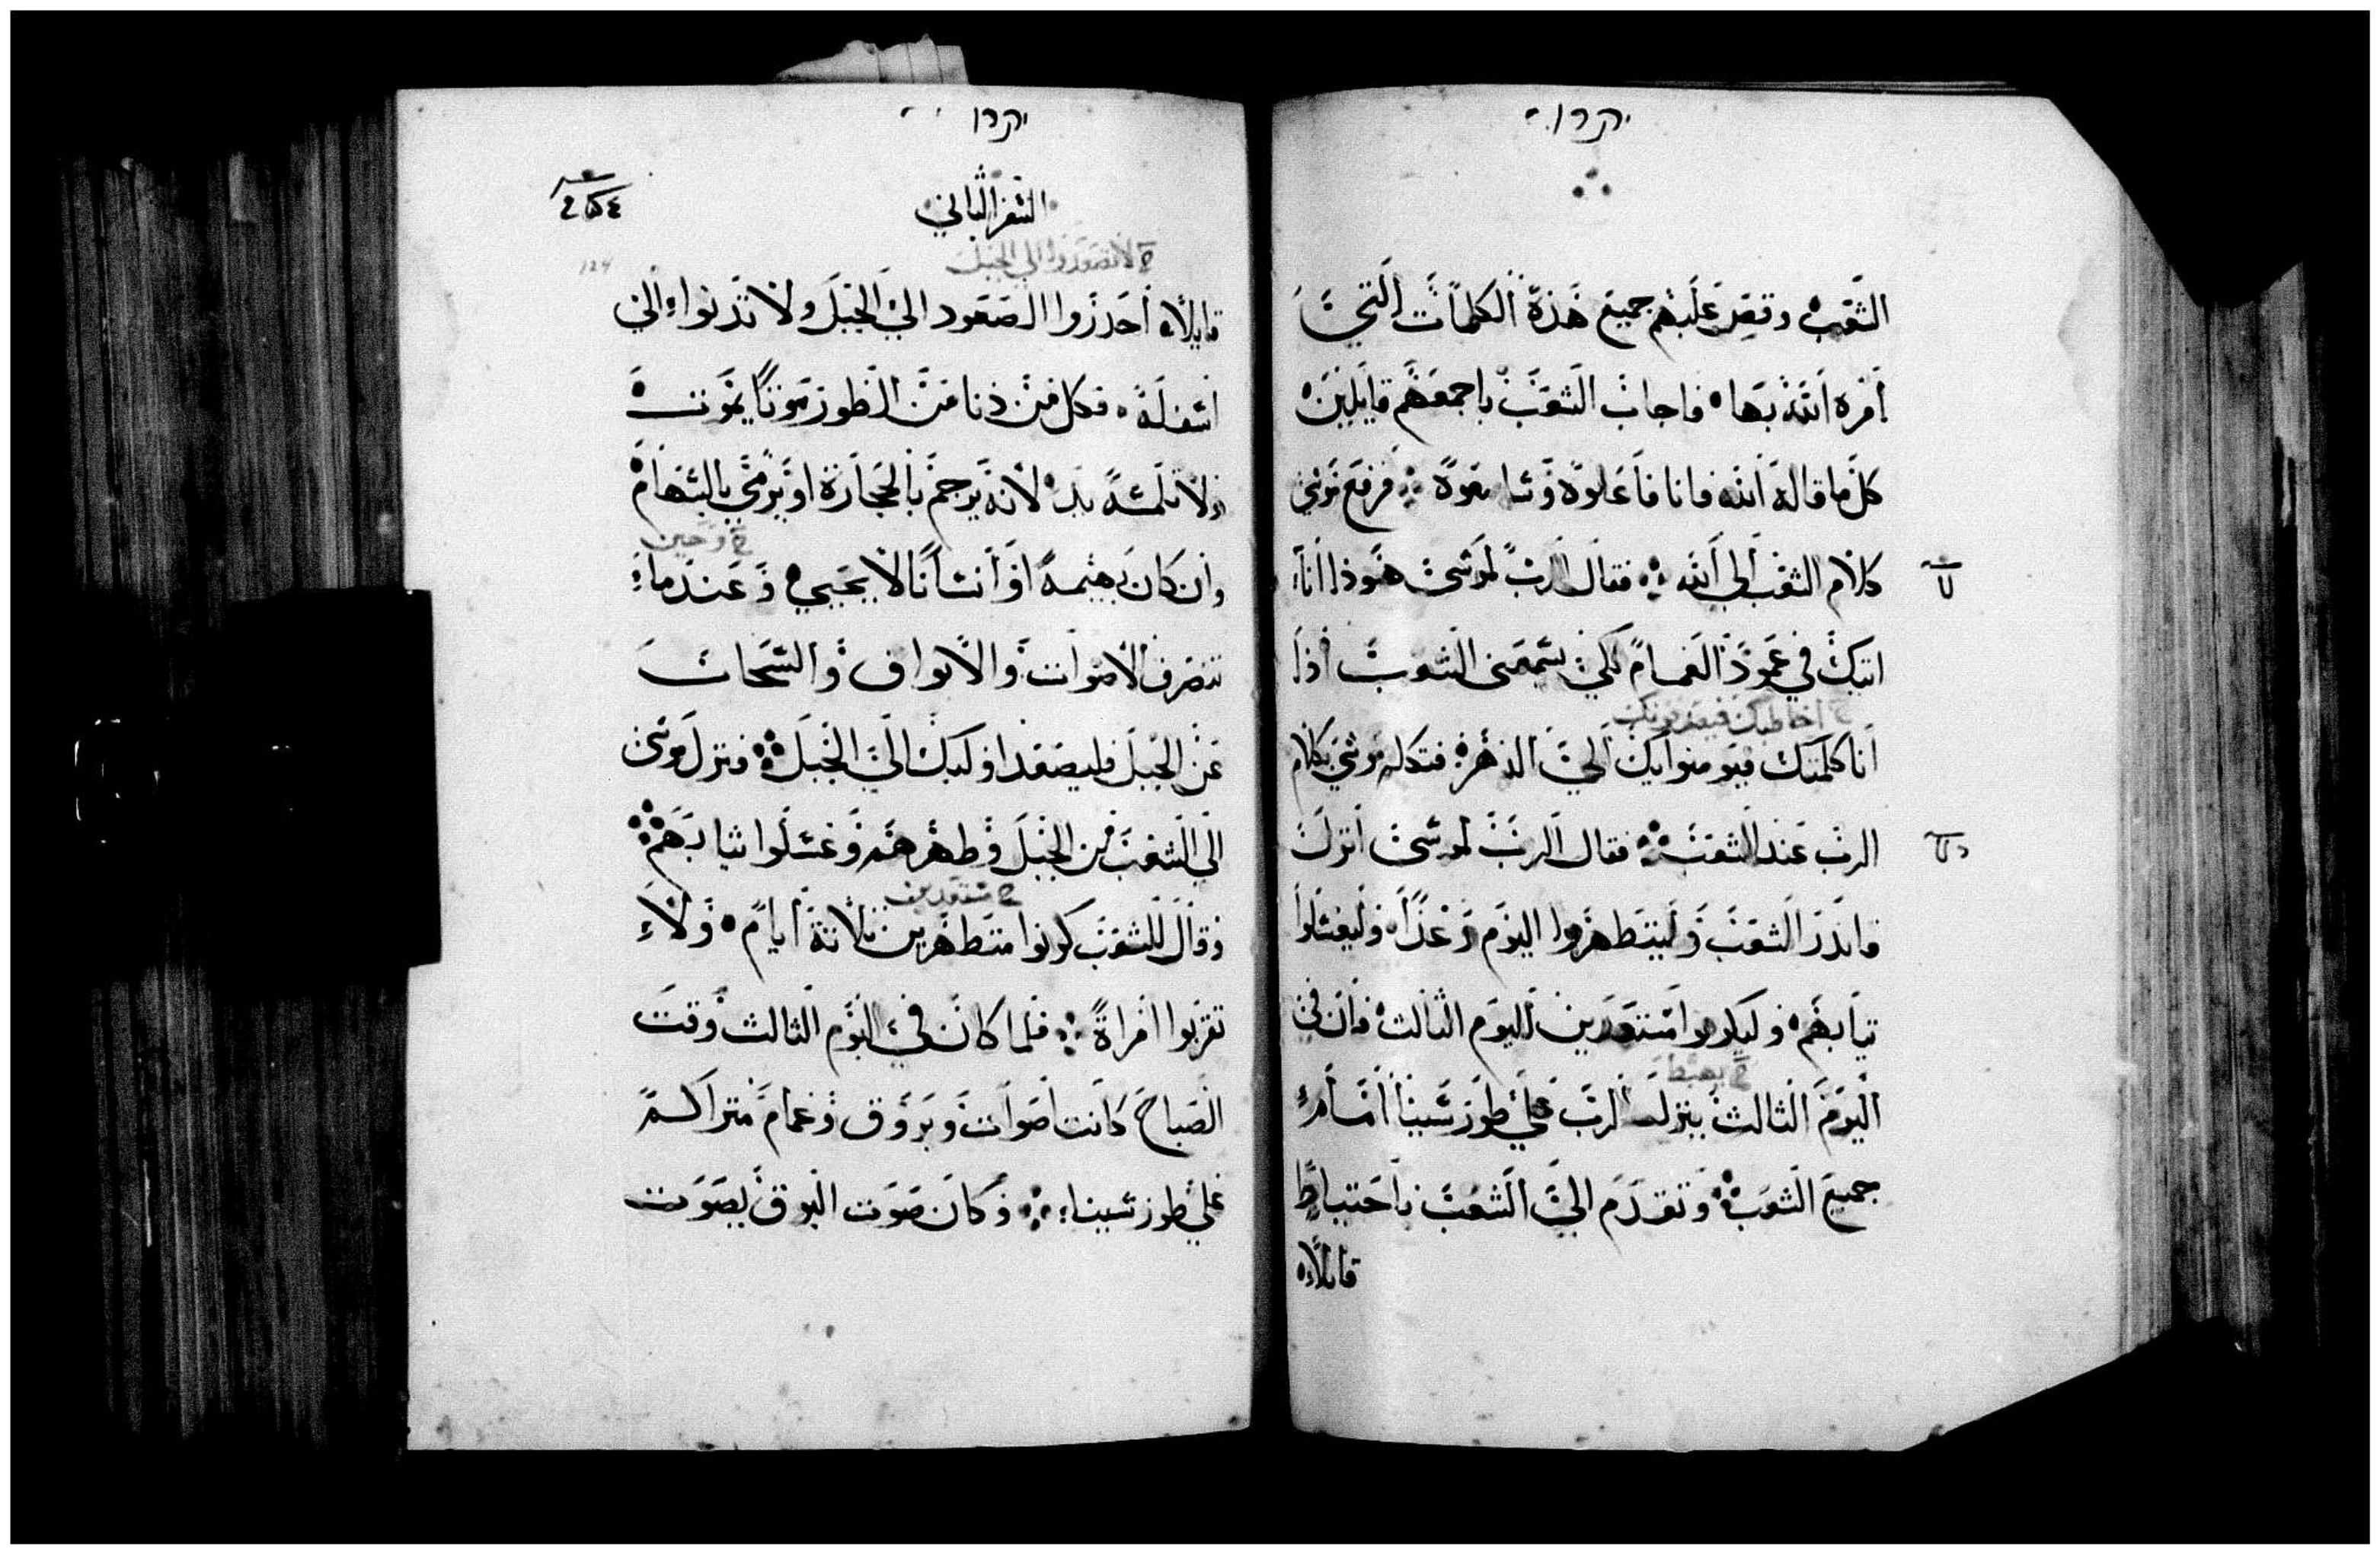 الشعب وقص عليهم جميع هذه الكلمات التي
امره الله بها فاجاب الشعب باجمعهم قايلين
كل ما قاله الله فانا فاعلوه وسامعوه فرفع موسى
كلام الشعب الي الله فقال الرب لموسى هوذا انا
اتيك في عمود الغمام لكي يسمعني الشعب اذا
خ اخاطبك فيصدقونك
انا كلمتك فيومنوا بك الى الدهر فتكلم موسى بكلام
الرب عند الشعب فقال الرب لموسى انزل
وانذر الشعب وليتطهروا اليوم وغدا وليغسلوا
ثيابهم وليكونوا مستعدين لليوم الثالث فان في
خ يهبط
اليوم الثالث ينزل الرب على طور سينا امام
جميع الشعب وتقدم الى الشعب باحتياط
قايلاه
السفر الثاني
خ لا تصعدوا الي الجبل
قايلا احذروا الصعود الي الجبل ولا تدنوا الى
اسفله فكل من دنا من الطور موتا يموت
ولا تلمسه يد لانه يرجم بالحجارة او يرمي بالسهام
خ وحين
وان كان بهيمة او انسانا لا يحيي وعندما
تنصرف الاصوات والابواق والسحاب
عن الجبل فليصعد اوليك الى الجبل فنزل موسى
الي الشعب من الجبل وطهرهم وغسلوا ثيابهم
خ مستعدين
وقال للشعب كونوا متطهرين ثلاثة ايام ولا
تقربوا امراة فلما كان في اليوم الثالث وقت
الصباح كانت اصوات وبروق وغمام متراكم
على طور سينا وكان صوت البوق بصوت